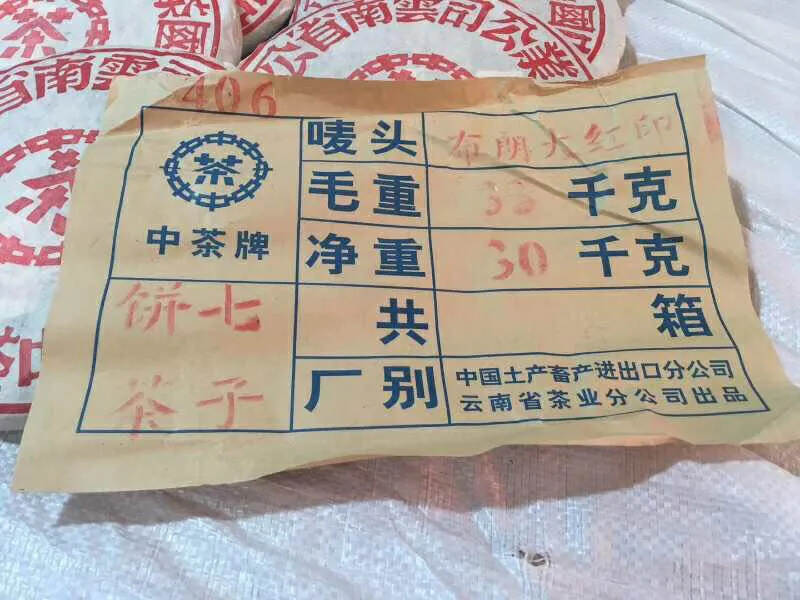 国
省南雲司公業
省南雲司
茶
茶
茶
406
茶
中茶牌
唛头 布朗大红印
毛重 33 千克
净重 30 千克
饼七 共 箱
茶子
厂别 中国土产畜产进出口分公司
云南省茶业分公司出品